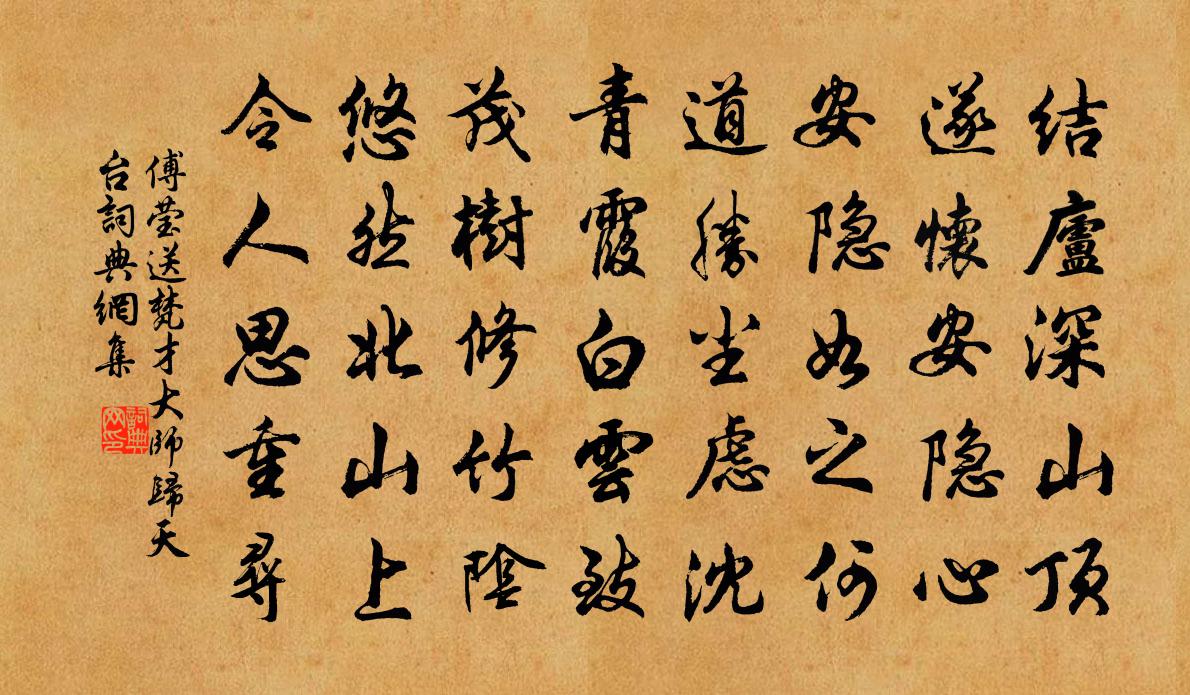 结廬深山顶
遂懷安隐心
安隐如之何
道勝坐慮沈
青霞白雲致
茂樹修竹陰
悠然北山上
令人思重尋
傅莹送梵才大師歸天
台詞典網集
詞典网印